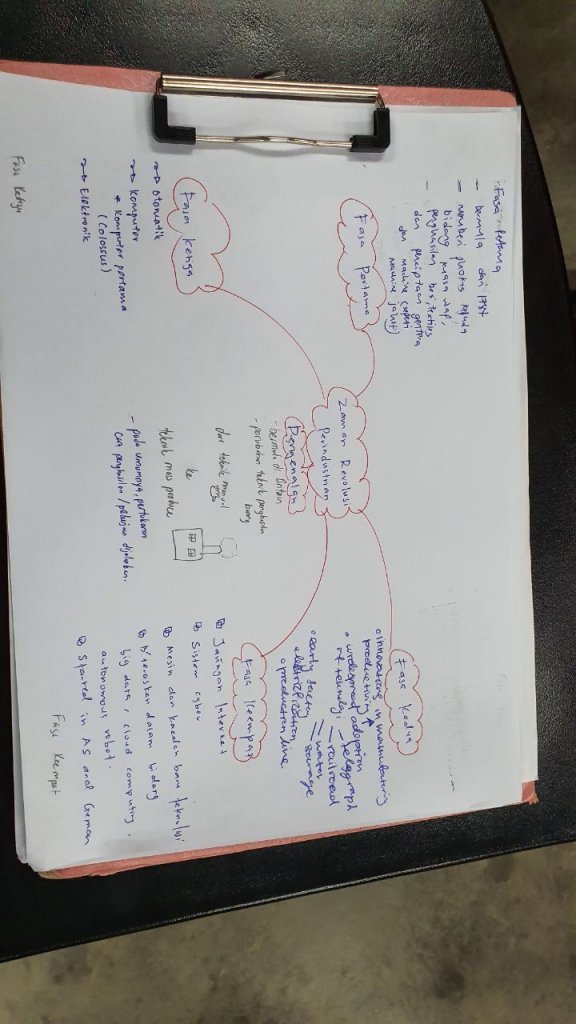 Fasa Pertama
- bermula dari 1784
- memberi fokus kepada
bidang kuasa wap,
penghasilan besi, textiles
dan penciptaan
dan machine (seperti
machine jahit)
Fasa Pertama
Fasa Kedua
• innovations in manufacturing
productivity ↑
• widespread adoption
of teknologi
- telegraph
- railroad
- water
- sewage
• early factory
electrification
• production line
Zaman Revolusi
Perindustrian
Pengenalan
- bermula di Britain
- perubahan teknik penghasilan
barang
dari teknik manual
ke
teknik mass produce
- pada umumnya, pertukaran
cara penghasilan / pekerjaan dijalankan.
Fasa Ketiga
→ Otomatik
→ Komputer
* Komputer pertama
(Colossus)
→ Elektronik
Fasa Ketiga
Fasa Keempat
Jaringan Internet
Sistem cyber
Mesin dan kaedah baru teknologi
Diteraskan dalam bidang
big data, cloud computing,
autonomous robot.
Started in AS and German
Fasa Keempat